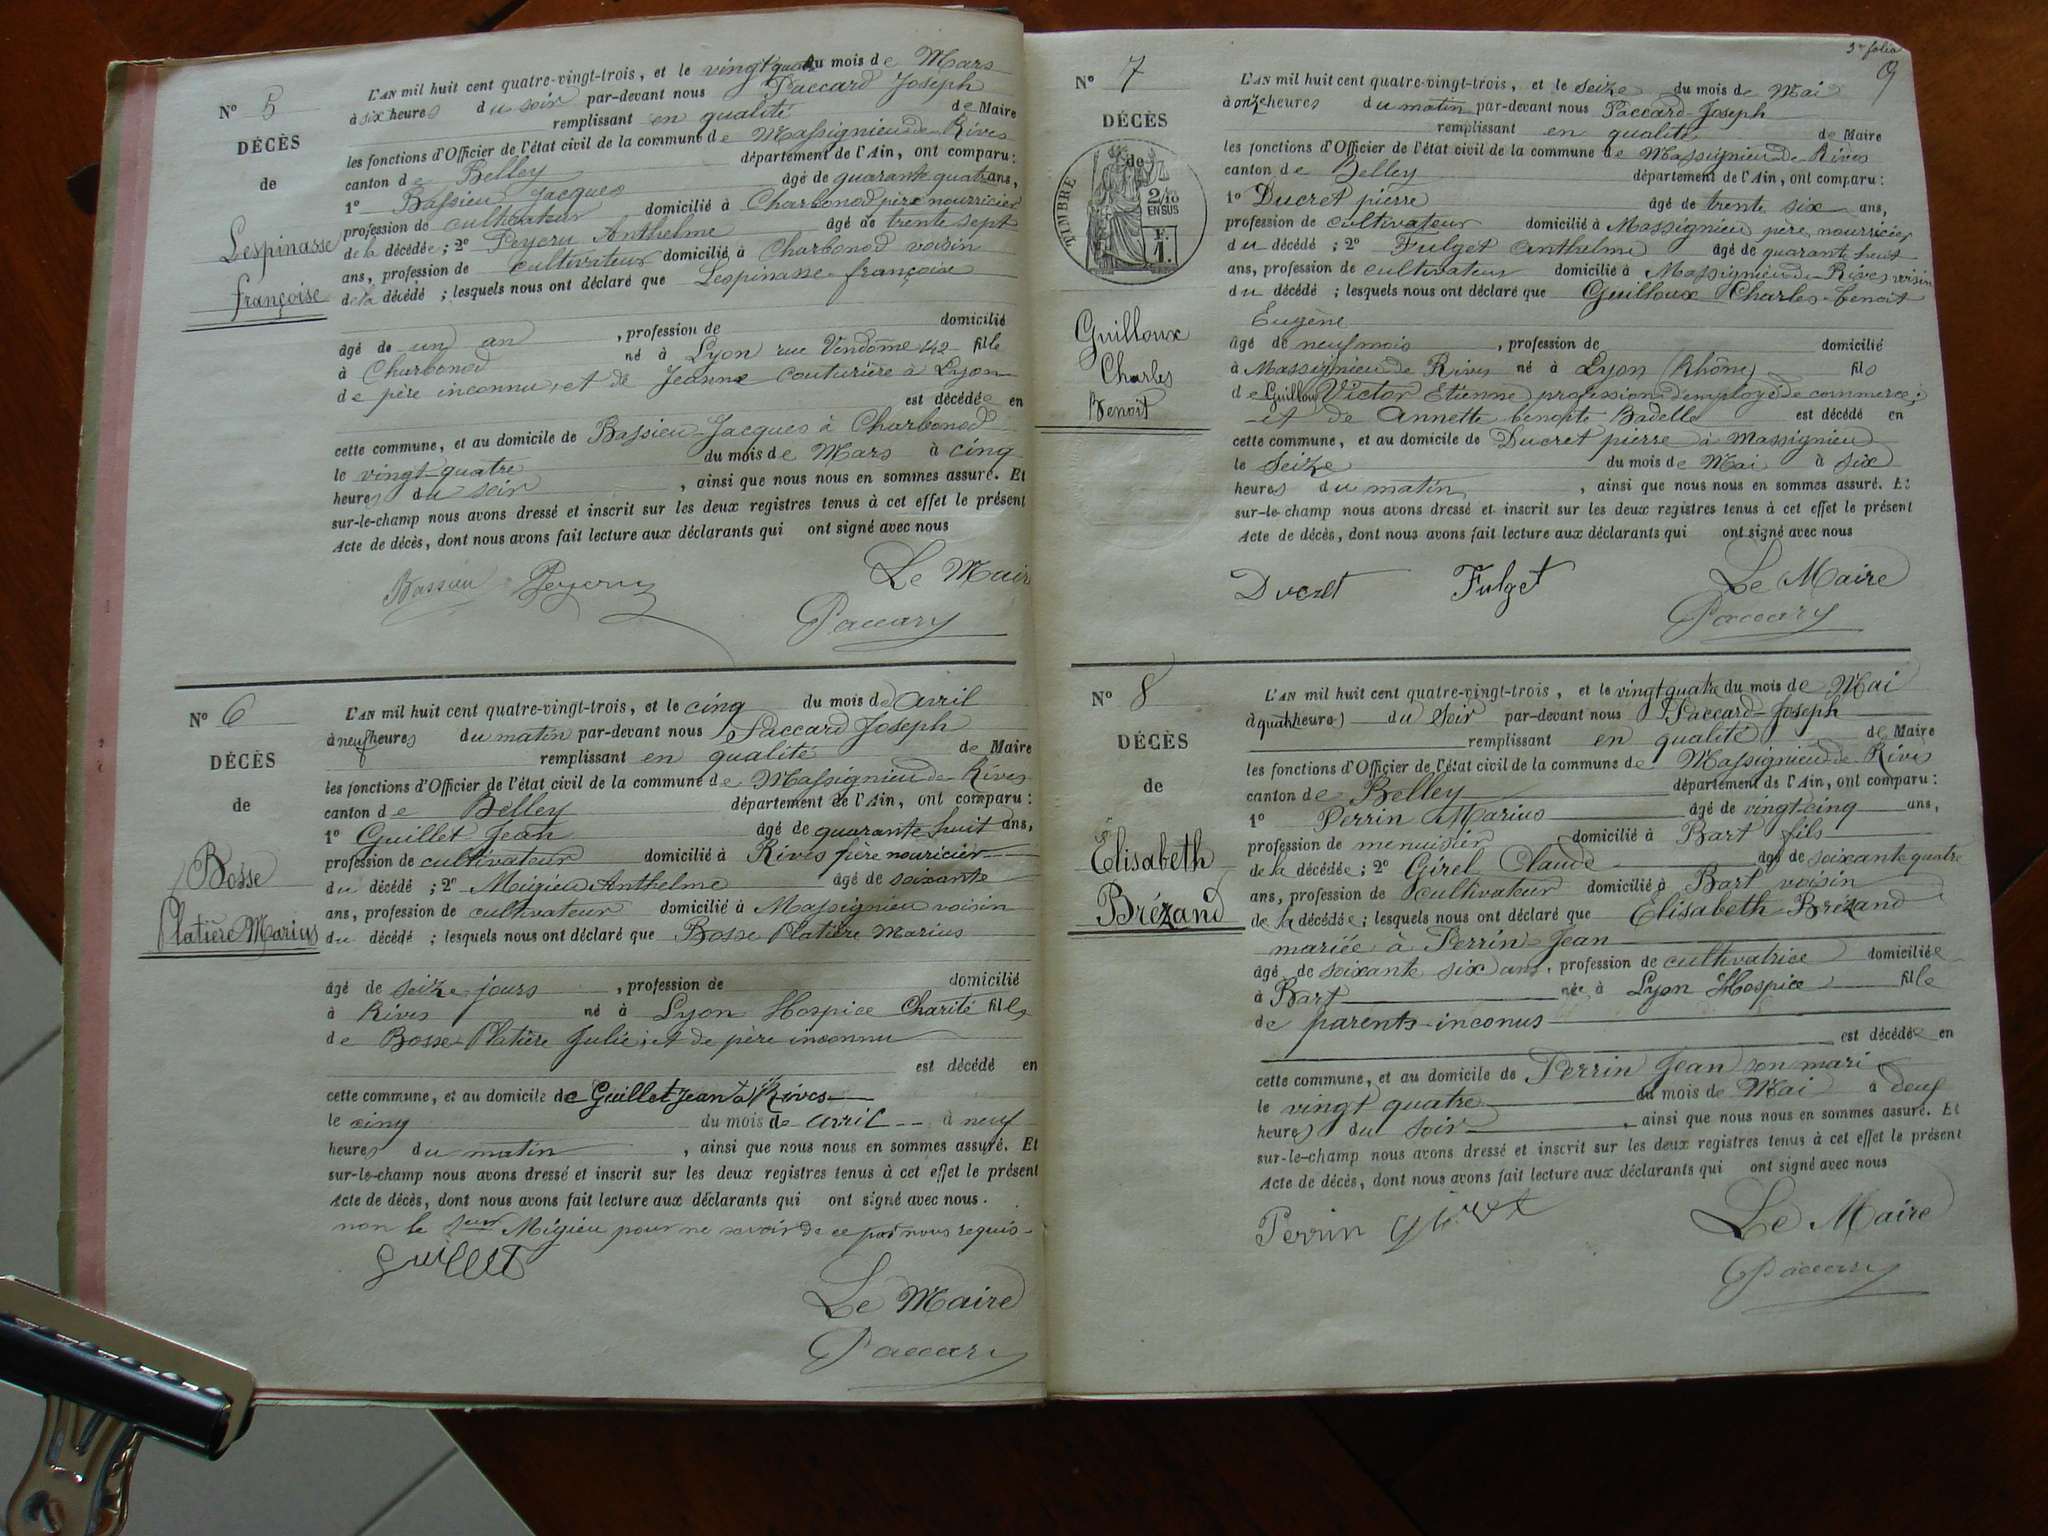 N° 5
DÉCÈS
de
Lespinasse
françoise
L'AN mil huit cent quatre-vingt-trois, et le vingt quatre du mois de Mars
à six heures du soir par-devant nous Paccard Joseph
remplissant en qualité de Maire
les fonctions d'Officier de l'état civil de la commune de Massignieu de Rives
canton de Belley département de l'Ain, ont comparu:
1° Bassieu Jacques âgé de quarante quatre ans,
profession de cultivateur domicilié à Charbonod père nourricier
de la décédée; 2° Peycru Anthelme âgé de trente sept
ans, profession de cultivateur domicilié à Charbonod voisin
de la décédé; lesquels nous ont déclaré que Lespinasse françoise
âgé de un an, profession de domicilié
à Charbonod né à Lyon rue Vendôme 142 fille
de père inconnu, et de Jeanne couturière à Lyon
est décédée en
cette commune, et au domicile de Bassieu Jacques à Charbonod
le vingt-quatre du mois de Mars à cinq
heures du soir, ainsi que nous nous en sommes assuré. Et
sur-le-champ nous avons dressé et inscrit sur les deux registres tenus à cet effet le présent
Acte de décès, dont nous avons fait lecture aux déclarants qui ont signé avec nous
Bassieu Peycru Le Maire
Paccard
N° 6
DÉCÈS
de
Bosse
Platière Marius
L'AN mil huit cent quatre-vingt-trois, et le cinq du mois de avril
à neuf heures du matin par-devant nous Paccard Joseph
remplissant en qualité de Maire
les fonctions d'Officier de l'état civil de la commune de Massignieu de Rives
canton de Belley département de l'Ain, ont comparu:
1° Guillet Jean âgé de quarante huit ans,
profession de cultivateur domicilié à Rives père nouricier
du décédé; 2° Migieu Anthelme âgé de soixante
ans, profession de cultivateur domicilié à Massignieu voisin
du décédé; lesquels nous ont déclaré que Bosse Platière Marius
âgé de seize jours, profession de domicilié
à Rives né à Lyon Hospice Charité fils
de Bosse Platière Julie, et de père inconnu
est décédé en
cette commune, et au domicile de Guillet Jean à Rives
le cinq du mois de avril à neuf
heures du matin, ainsi que nous nous en sommes assuré. Et
sur-le-champ nous avons dressé et inscrit sur les deux registres tenus à cet effet le présent
Acte de décès, dont nous avons fait lecture aux déclarants qui ont signé avec nous.
non le sieur Migieu pour ne savoir de ce par nous requis
Guillet
Le Maire
Paccard
3me folio
9
N° 7
DÉCÈS
de
TIMBRE
2/10
EN SUS
F.
1.
Guilloux
Charles
Benoit
L'AN mil huit cent quatre-vingt-trois, et le seize du mois de Mai
à onze heures du matin par-devant nous Paccard Joseph
remplissant en qualité de Maire
les fonctions d'Officier de l'état civil de la commune de Massignieu de Rives
canton de Belley département de l'Ain, ont comparu:
1° Ducret pierre âgé de trente six ans,
profession de cultivateur domicilié à Massignieu père nourricier
du décédé; 2° Fulget anthelme âgé de quarante huit
ans, profession de cultivateur domicilié à Massignieu de Rives voisin
du décédé; lesquels nous ont déclaré que Guilloux Charles benoit
Eugène
âgé de neuf mois, profession de domicilié
à Massignieu de Rives né à Lyon (Rhône) fils
de Guilloux Victor Etienne profession d'employé de commerce;
et de Annette benoite Badelle est décédé en
cette commune, et au domicile de Ducret pierre à Massignieu
le Seize du mois de Mai à six
heures du matin, ainsi que nous nous en sommes assuré. Et
sur-le-champ nous avons dressé et inscrit sur les deux registres tenus à cet effet le présent
Acte de décès, dont nous avons fait lecture aux déclarants qui ont signé avec nous
Ducret Fulget Le Maire
Paccard
N° 8
DÉCÈS
de
Elisabeth
Brézand
L'AN mil huit cent quatre-vingt-trois, et le vingt quatre du mois de Mai
à quatre heures du Soir par-devant nous Paccard Joseph
remplissant en qualité de Maire
les fonctions d'Officier de l'état civil de la commune de Massignieu de Rives
canton de Belley département de l'Ain, ont comparu:
1° Perrin Marius âgé de vingt cinq ans,
profession de menuisier domicilié à Bart fils
de la décédée; 2° Girel Claude âgé de soixante quatre
ans, profession de cultivateur domicilié à Bart voisin
de la décédée; lesquels nous ont déclaré que Elisabeth Brézand
mariée à Perrin Jean
âgé de soixante six ans, profession de cultivatrice domiciliée
à Bart née à Lyon Hospice fille
de parents inconus
est décédée en
cette commune, et au domicile de Perrin Jean son mari
le vingt quatre du mois de Mai à deux
heures du soir, ainsi que nous nous en sommes assuré. Et
sur-le-champ nous avons dressé et inscrit sur les deux registres tenus à cet effet le présent
Acte de décès, dont nous avons fait lecture aux déclarants qui ont signé avec nous
Perrin Girel Le Maire
Paccard